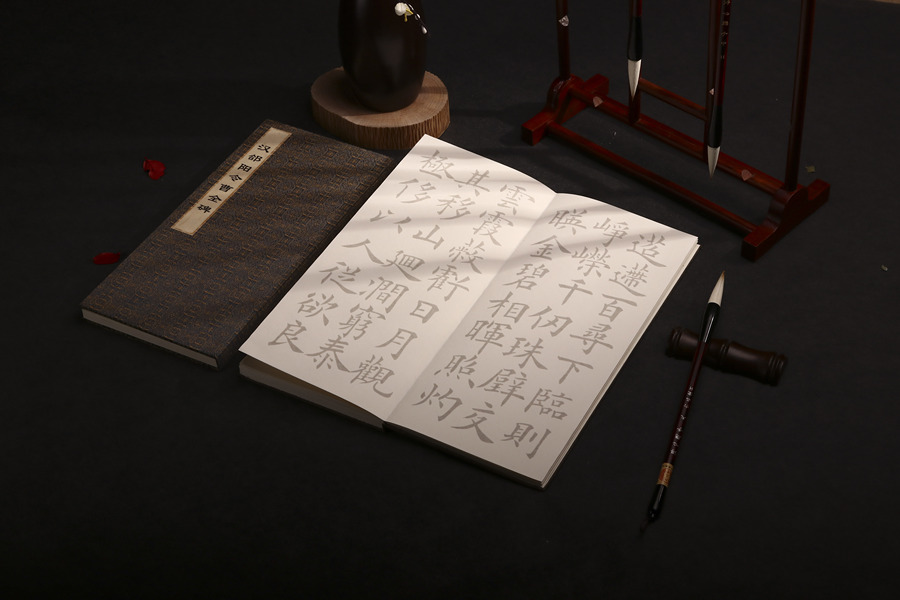 汉郃阳令曹全碑
迢遰百尋下臨則
崢嶸千仞珠璧交
暎金碧相暉照灼
雲霞蔽虧日月觀
其移山迴澗窮泰
極侈以人從欲良